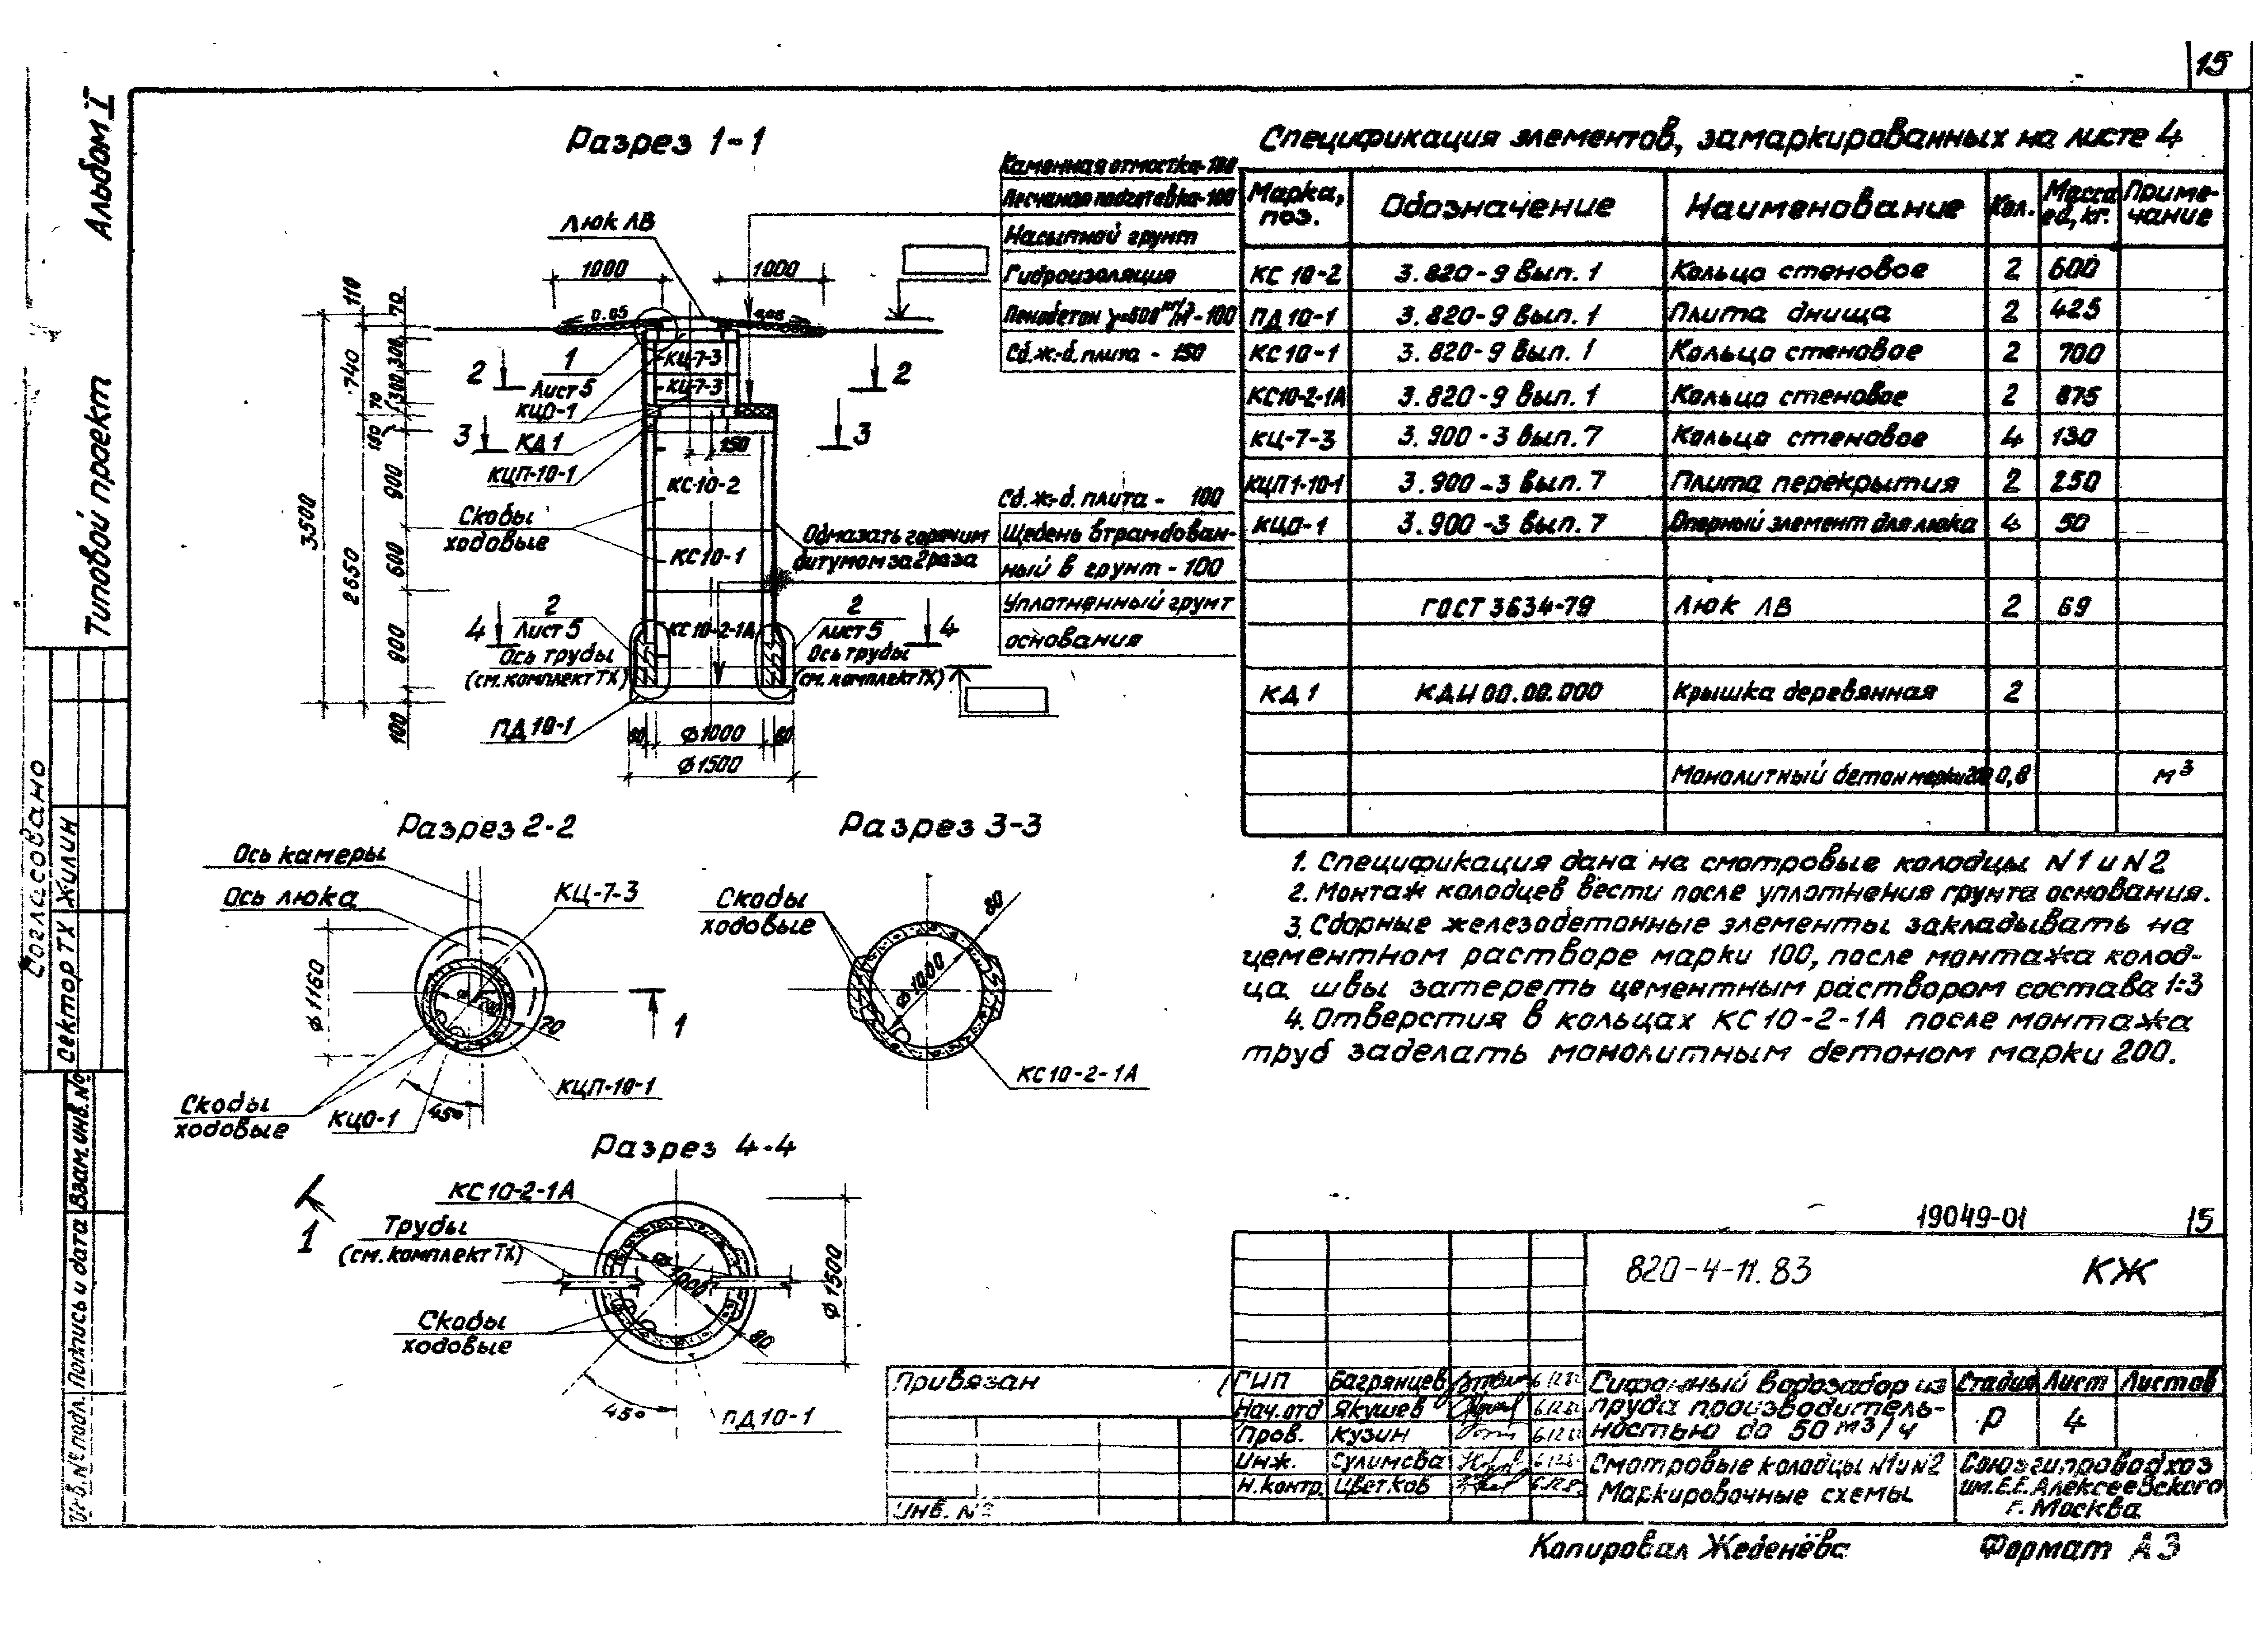 15
Альбом I
Типовой проект
Разрез 1-1
Люк ЛВ
1000
1000
0.05
110
70
740
300
300
70
150
900
600
900
100
3500
2650
КЦ-7-3
КЦ-7-3
1
Лист 5
КЦО-1
КД 1
КЦП-10-1
2
2
3
3
150
КС-10-2
Скобы
ходовые
КС 10-1
Обмазать горячим
битумом за 2 раза
КС 10-2-1А
2
Лист 5
2
Лист 5
4
4
Ось трубы
(см. комплект ТХ)
Ось трубы
(см. комплект ТХ)
ПД 10-1
80
ф1000
80
ф1500
Каменная отмостка-100
Песчаная подготовка-100
Насыпной грунт
Гидроизоляция
Пенобетон γ=600 кг/м3-100
Сб. ж-б. плита - 150
Сб. ж-б. плита - 100
Щебень втрамбован-
ный в грунт - 100
Уплотненный грунт
основания
Спецификация элементов, замаркированных на листе 4
Марка, поз. Обозначение Наименование Кол. Масса ед, кг. Приме-чание
КС 10-2 3.820-9 вып. 1 Кольцо стеновое 2 600
ПД 10-1 3.820-9 вып. 1 Плита днища 2 425
КС 10-1 3.820-9 вып. 1 Кольцо стеновое 2 700
КС10-2-1А 3.820-9 вып. 1 Кольцо стеновое 2 875
КЦ-7-3 3.900-3 вып. 7 Кольцо стеновое 4 130
КЦП1-10-1 3.900-3 вып. 7 Плита перекрытия 2 250
КЦО-1 3.900-3 вып. 7 Опорный элемент для люка 4 50
ГОСТ 3634-79 Люк ЛВ 2 69
КД 1 КДИ 00.00.000 Крышка деревянная 2
Монолитный бетон марки 200 0,8 м3
1. Спецификация дана на смотровые колодцы N1 и N2
2. Монтаж колодцев вести после уплотнения грунта основания.
3. Сборные железобетонные элементы закладывать на
цементном растворе марки 100, после монтажа колод-
ца швы затереть цементным раствором состава 1:3
4. Отверстия в кольцах КС 10-2-1А после монтажа
труб заделать монолитным бетоном марки 200.
Разрез 2-2
Ось камеры
Ось люка
КЦ-7-3
ф1160
70
1
КЦП-10-1
Скобы
ходовые
КЦО-1
45°
Разрез 3-3
Скобы
ходовые
80
ф1000
КС 10-2-1А
Разрез 4-4
1
КС 10-2-1А
Трубы
(см. комплект ТХ)
ф1000
ф1500
Скобы
ходовые
80
45°
ПД 10-1
Согласовано
Сектор ТХ Жилин
Взам. инв. №
Подпись и дата
Инв. № подл.
19049-01 15
820-4-11.83 КЖ
Привязан
Инв. №
ГИП Багрянцев
Нач. отд Якушев
Пров. Кузин
Инж. Сулимова
Н. контр. Цветков
Сифонный водозабор из
пруда производитель-
ностью до 50 м3/ч
Стадия Лист Листов
Р 4
Смотровые колодцы N1 и N2
Маркировочные схемы
Союзгипроводхоз
им. Е.Е. Алексеевского
г. Москва
Копировал Жеденёва Формат А3